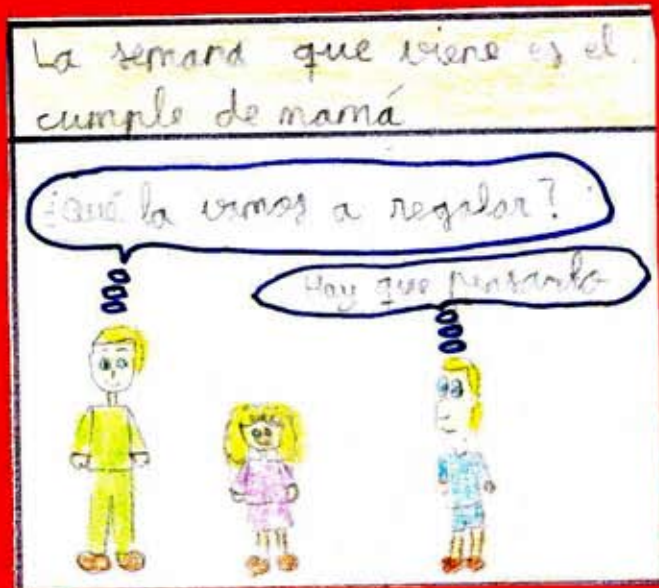 La semana que viene es el
cumple de mamá
¿Qué la vamos a regalar?
Hay que pensarlo